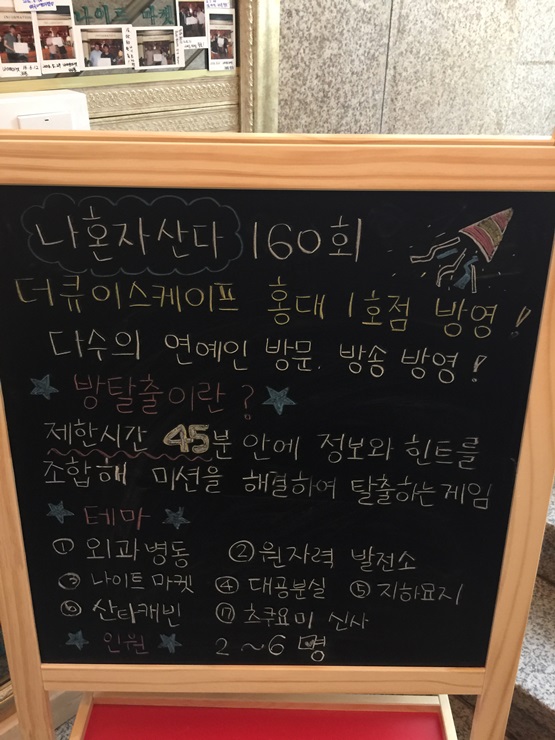 나이트 마켓
나혼자산다 160회
더큐이스케이프 홍대 1호점 방영!
다수의 연예인 방문. 방송 방영!
방탈출이란?
제한시간 45분 안에 정보와 힌트를
조합해 미션을 해결하여 탈출하는게임
테마
① 외과병동 ② 원자력 발전소
③ 나이트 마켓 ④ 대공분실 ⑤ 지하묘지
⑥ 산타캐빈 ⑦ 츠쿠요미 신사
인원 2~6명